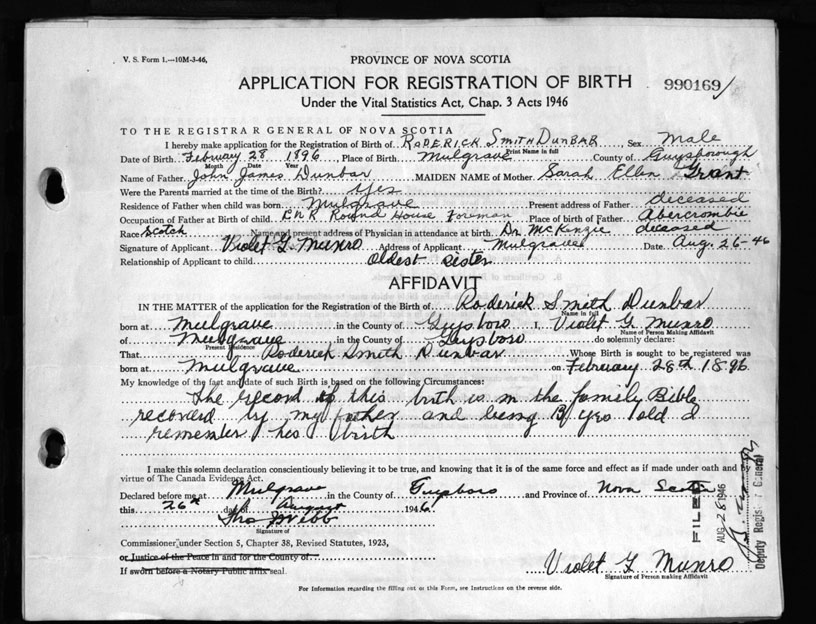 V. S. Form 1.—10M-3-46.
PROVINCE OF NOVA SCOTIA
APPLICATION FOR REGISTRATION OF BIRTH
990169
Under the Vital Statistics Act, Chap. 3 Acts 1946
TO THE REGISTRAR GENERAL OF NOVA SCOTIA
I hereby make application for the Registration of Birth of RODERICK SMITH DUNBAR Sex Male
Print Name in full
Date of Birth February 28 1896 Place of Birth Mulgrave County of Guysborough
Month Date Year
Name of Father John James Dunbar MAIDEN NAME of Mother Sarah Ellen Grant
Were the Parents married at the time of Birth? Yes
Residence of Father when child was born Mulgrave Present address of Father deceased
Occupation of Father at Birth of child. CNR Round House Foreman Place of birth of Father Abercrombie
Race Scotch Name and present address of Physician in attendance at birth. Dr. McKenzie deceased
Signature of Applicant Violet G. Munro Address of Applicant Mulgrave Date Aug. 26-46
Relationship of Applicant to child. oldest sister
AFFIDAVIT
IN THE MATTER of the application for the Registration of the Birth of Roderick Smith Dunbar
Name in full
born at Mulgrave in the County of Guysboro I, Violet G Munro
Name of Person Making Affidavit
of Mulgrave in the County of Guysboro do solemnly declare:
Present Residence
That Roderick Smith Dunbar Whose Birth is sought to be registered was
born at Mulgrave on February 28th 1896
My knowledge of the fact and date of such Birth is based on the following Circumstances:
The record of this birth is in the family Bible
recorded by my father and being 13 yrs old I
remember his birth
I make this solemn declaration conscientiously believing it to be true, and knowing that it is of the same force and effect as if made under oath and by
virtue of The Canada Evidence Act.
Declared before me at Mulgrave in the County of Guysboro and Province of Nova Scotia
this 26th day of August 1946
Thos Webb
Signature of
Commissioner, under Section 5, Chapter 38, Revised Statutes, 1923,
or Justice of the Peace in and for the County of
If sworn before a Notary Public affix seal.
Violet G Munro
Signature of Person making Affidavit
For Information regarding the filling out of this Form, see Instructions on the reverse side.
FILED
AUG 28 1946
Deputy Registrar General